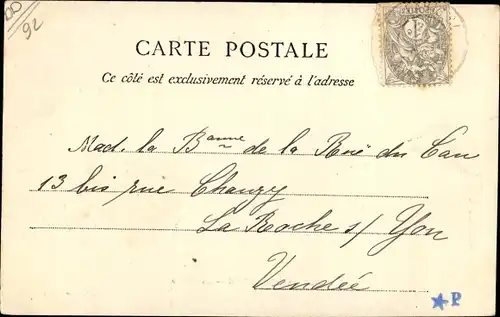 92
CARTE POSTALE
Ce côté est exclusivement réservé à l'adresse
Mad. la Bonne de la Roë du Can
13 bis rue Chanzy
La Roche s/ Yon
Vendée
P